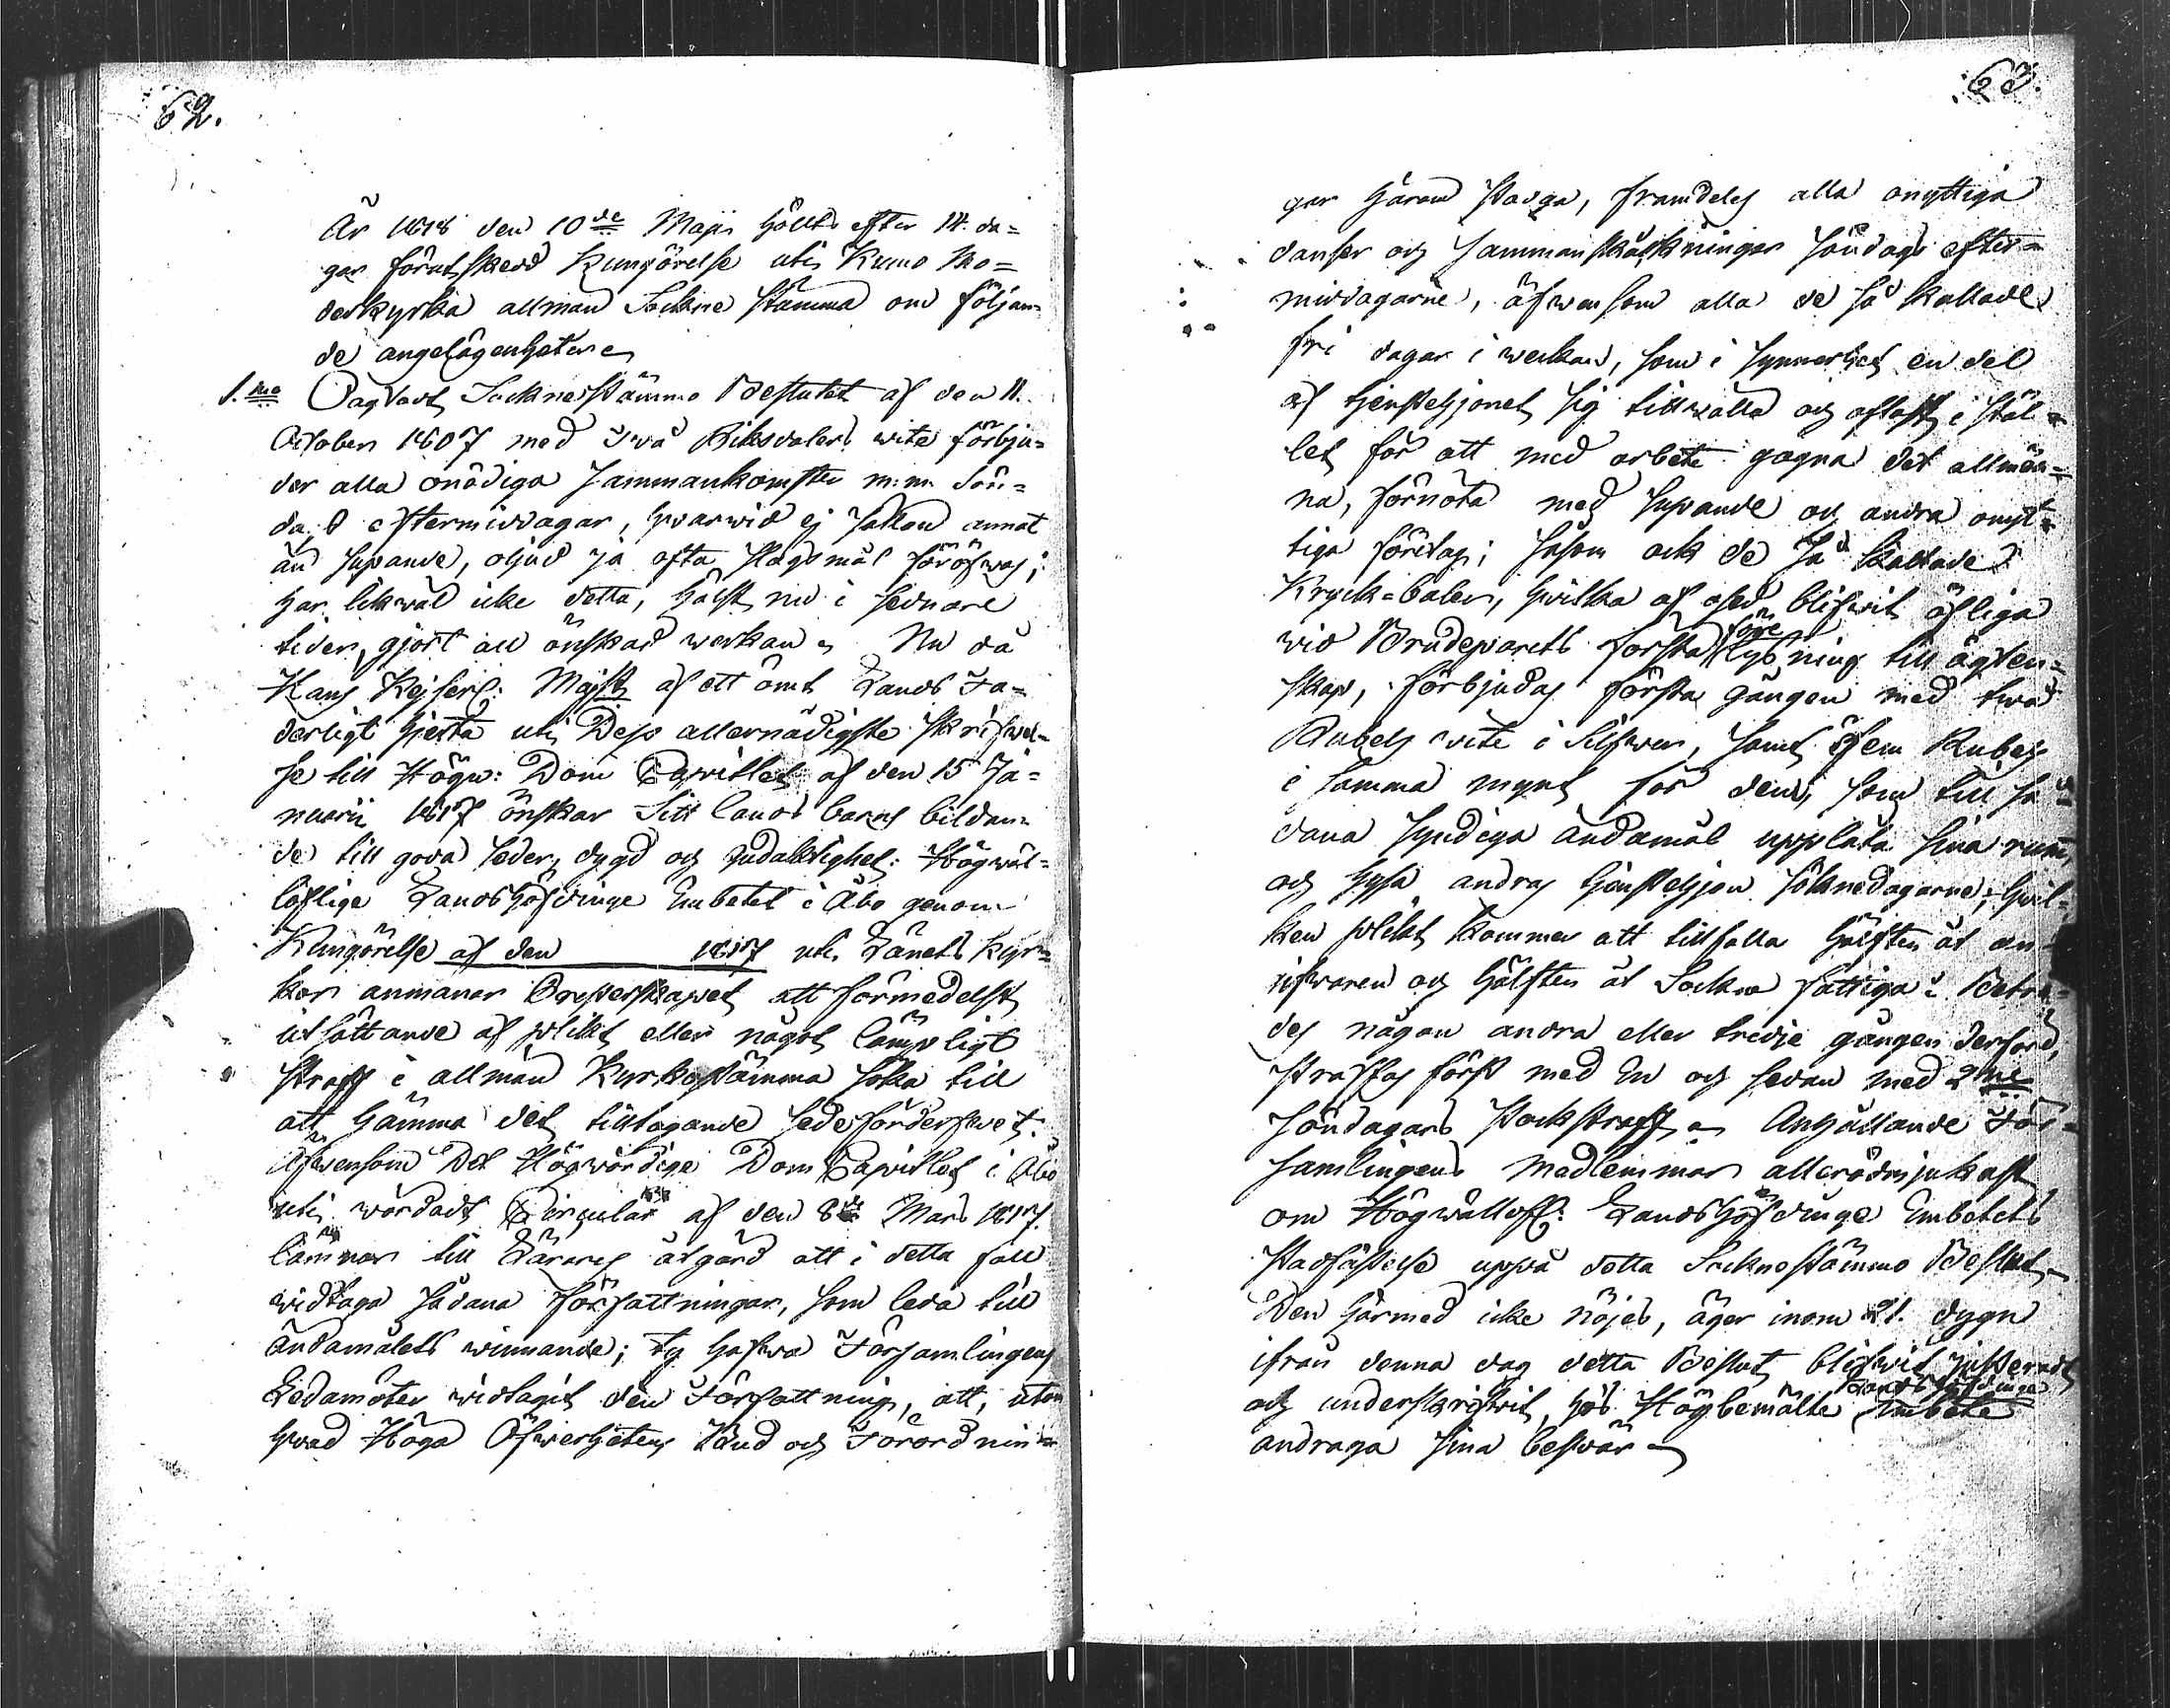 62.
År 1818 den 10de Maji hölts efter 14. da=
gar förut skedd Kungörelse uti Kumo Mo=
derkyrka allmän Sockne stämma om följan=
de angelägenheter
1.mo Oagtadt Sockne stämmo Beslutet af den 11.
October 1807 med två Riksdalers wite förbju=
der alla onödiga sammankomster m.m. Sön=
dags eftermiddagar, hvarwid ej sällan annat
än supande, oljud ja ofta slagsmål föröfwas;
har likwäl icke detta, hälst nu i sednare
tider, gjort all önskad werkan. Nu då
Hans Kejserl: Majst af ett ömt Lands Fa=
derligt hjerta uti Dess allernådigste skrifwel=
se till Högw: Dom Capitlet af den 15 Ja=
nuarii 1817 önskar Sitt lands barns bildan=
de till goda seder, dygd och gudaktighet: Högwäl=
löflige Landshöfdinge Embetet i Åbo genom
Kungörelse af den 1817 uti Länets Kyr=
kor anmanar Presterskapet att förmedelst
utsättande af plikt eller något lämpligt
straff i allmän Kyrkostämma söka till
att hämma det tilltagande sedeförderfwet.
Äfwensom Det Högwördige Dom Capitlet i Åbo
uti wördadt Circulär af den 8de Mars 1817.
lämnar till Lärares åtgärd att i detta fall
widtaga sådana författningar, som leda till
ändamålets winnande; ty hafwa Församlingens
Ledamöter widtagit den Författning, att, utom
hwad Höga Öfwerhetens Bud och Förordnin=
63.
gar härom stadga, framdeles alla onyttiga
danser och sammanskåckningar Söndags efter=
middagarne, äfwensom alla de så kallade
fri dagar i weckan, som i synnerhet en del
af tjenstehjonet sig tillwälla och oftast i stäl=
let för att med arbete gagna det allmän=
na, förnöta med supande och andra onyt=
tiga företag; såsom ock de så kallade
Kryck=baler, hvilka af osed blifwit öfliga
wid Brudeparets första lysning till ägten=
före
skap, förbjudas första gången med twå
Rubels wite i Silfwer, samt fem Rubels
i samma mynt för den, som till så=
dana syndiga ändamål upplåta sina rum,
och hysa andras tjenstehjon söknedagarne; hwil=
ken plikt kommer att tillfalla hälften åt an=
gifwaren och hälften åt Sockne fattiga. Beträ=
des någon andra eller tredje gången derför,
straffas först med En och sedan med 2ne
Söndagars stockstraff. Anhållande För=
samlingens medlemmar allerödmjukast
om Högwällofl: Landshöfdinge Embetets
stadfästelse uppå detta Sockne stämmo Beslut.
Den härmed icke nöjes, äger inom 21. dygn
ifrån denna dag detta Beslut blifwit justeradt
och underskrifwit, hos Högbemälte Embete
Landshöfdinge
andraga sina beswär